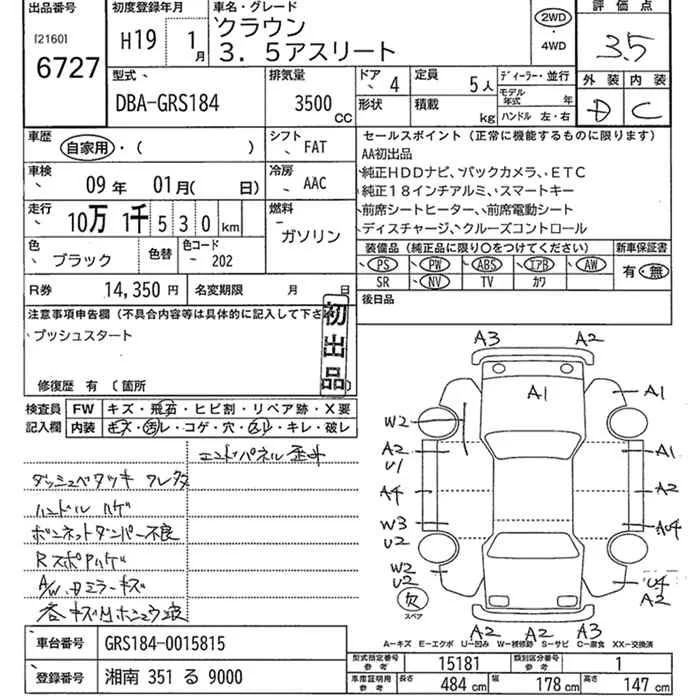 出品番号
[2160]
6727
初度登録年月
H19 1月
車名・グレード
クラウン
3.5アスリート
2WD
・
4WD
評価点
3.5
型式
DBA-GRS184
排気量
3500 CC
ドア 4
形状
定員 5人
積載 kg
ディーラー・並行
モデル年式 年
ハンドル 左・右
外装 内装
D C
車歴
自家用・( )
シフト FAT
車検
09年 01月( 日)
冷房 AAC
走行
10万 1千 530km
燃料
ガソリン
色 ブラック 色替
色コード 202
セールスポイント(正常に機能するものに限ります)
AA初出品
純正HDDナビ、バックカメラ、ETC
純正18インチアルミ、スマートキー
前席シートヒーター、前席電動シート
ディスチャージ、クルーズコントロール
装備品(純正品に限り○をつけてください) 新車保証書
PS PW ABS エアB AW
SR NV TV カワ
有・無
R券 14,350円 名変期限 月 日
後日品
注意事項申告欄(不具合内容等は具体的に記入して下さい)
プッシュスタート
初出品
修復歴 有 [箇所
検査員記入欄
FW キズ・飛石・ヒビ割・リペア跡・X要
内装 キズ・汚レ・コゲ・穴・スレ・キレ・破レ
エンドパネル歪み
ダッシュベタツキ ワレ
ハンドル ハゲ
ボンネットダンパー不良
Rスポハゲ
A/W.ドミラーキズ
A3 A2
A1 A1
W2
A2 U1 A1
A4 A2
W3 U2
W2 U2
U4 A2
欠
スペア
A2 A2 A3
A-キズ E-エクボ U-凹み W-補修跡 S-サビ C-腐食 XX-交換済
車台番号 GRS184-0015815
登録番号 湘南 351 る 9000
型式指定番号 参考 15181 類別区分番号 参考 1
車庫証明用 参考 長さ 484cm 幅 178cm 高さ 147cm